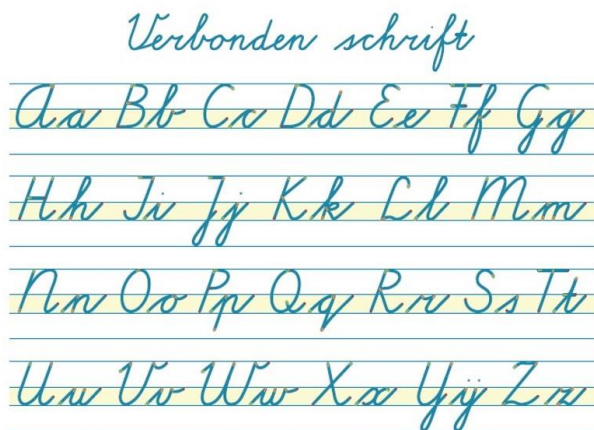 Verbonden schrift
Aa Bb Cc Dd Ee Ff Gg
Hh Ii Jj Kk Ll Mm
Nn Oo Pp Qq Rr Ss Tt
Uu Vv Ww Xx Yÿ Zz